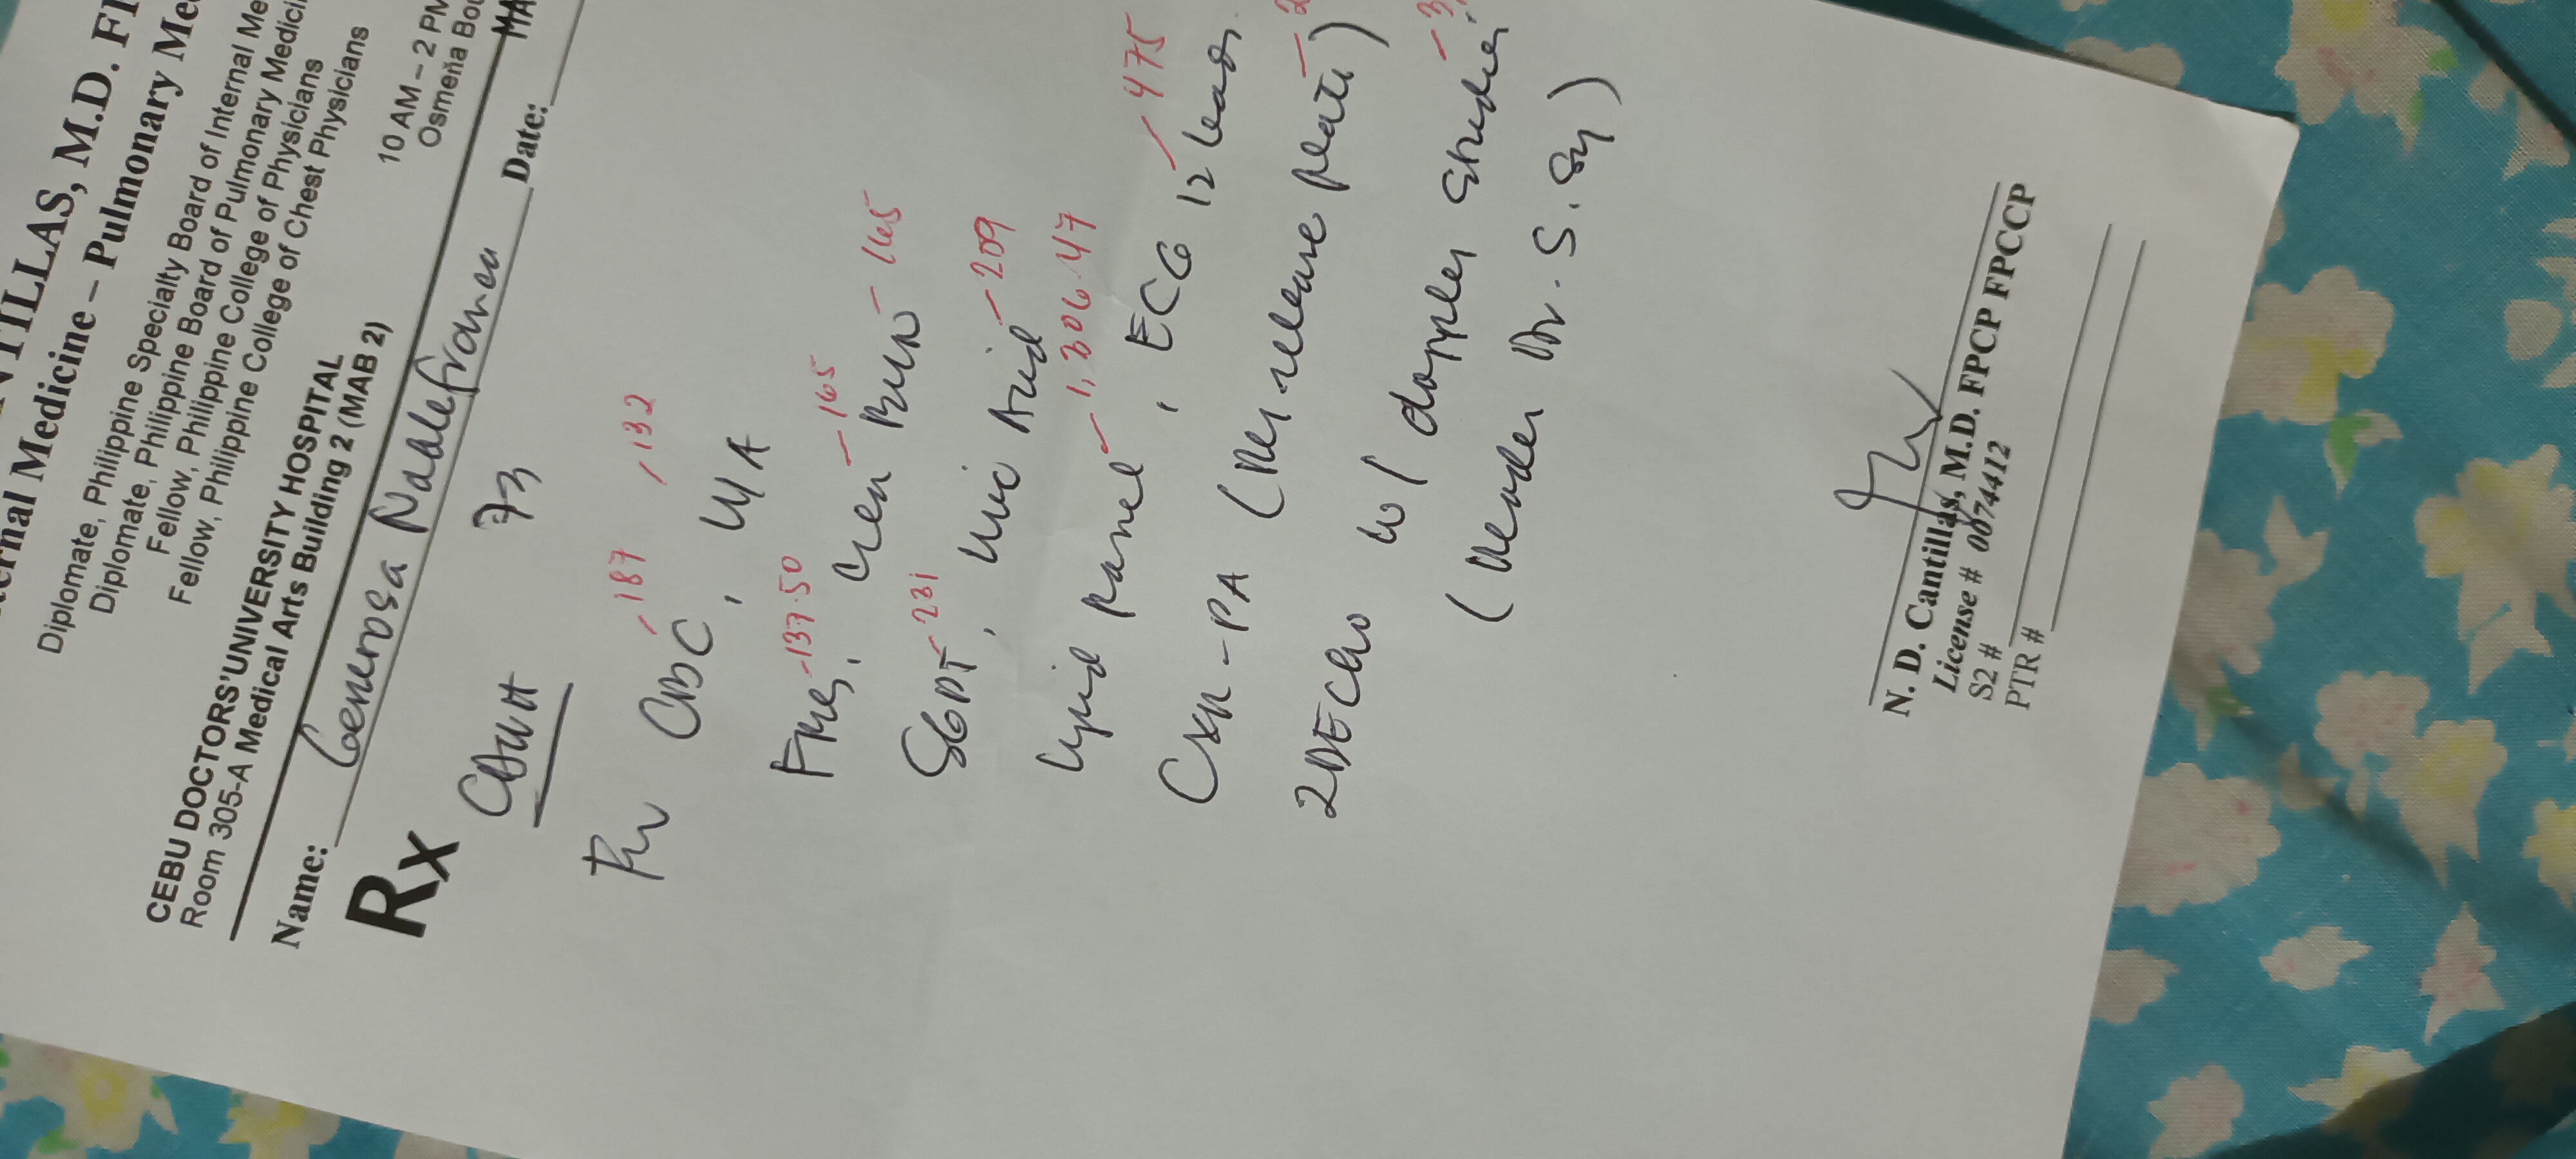 TILLAS, M.D. F
ernal Medicine – Pulmonary Me
Diplomate, Philippine Specialty Board of Internal Me
Diplomate, Philippine Board of Pulmonary Medici
Fellow, Philippine College of Physicians
Fellow, Philippine College of Chest Physicians
CEBU DOCTORS' UNIVERSITY HOSPITAL
Room 305-A Medical Arts Building 2 (MAB 2)
10 AM – 2 PM
Osmeña Bou
Name: Generosa Date: MA
Rx CDUH 73
187 132
CBC, U/A
137.50 165 165
FBS, Crea BUN
231 209
SGPT, Uric Acid
1,306.47 475
Lipid panel, ECG 12 leads
CXR-PA (release plate)
2DEcho w/ doppler studies
(reader Dr. S. Sy)
N. D. Cantillas, M.D. FPCP FPCCP
License # 0074412
S2 #
PTR #